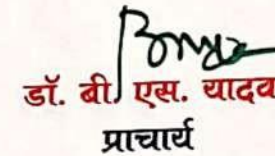 डॉ. बी. एस. यादव
प्राचार्य